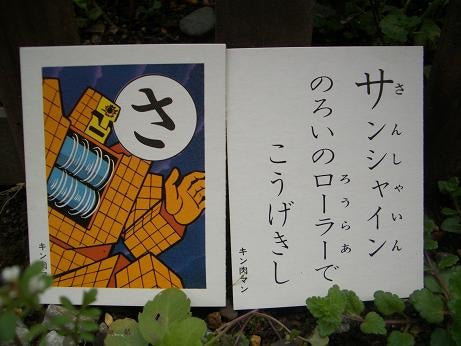 さ
キン肉
サンシャイン
さんしゃいん
のろいのローラーで
ろうらあ
こうげきし
キン肉マン